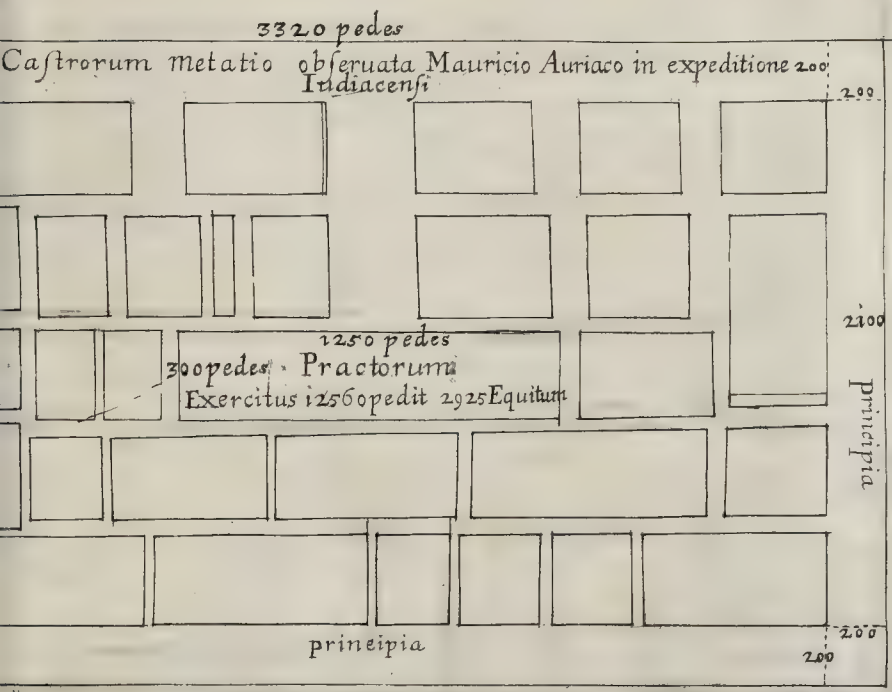 3320 pedes
Caſtrorum metatio obſeruata Mauricio Auriaco in expeditione 200
Iudiacenſi
200
2100
1250 pedes
300 pedes Practorum
Exercitus 12560 pedit 2925 Equitum
principia
principia
200
200